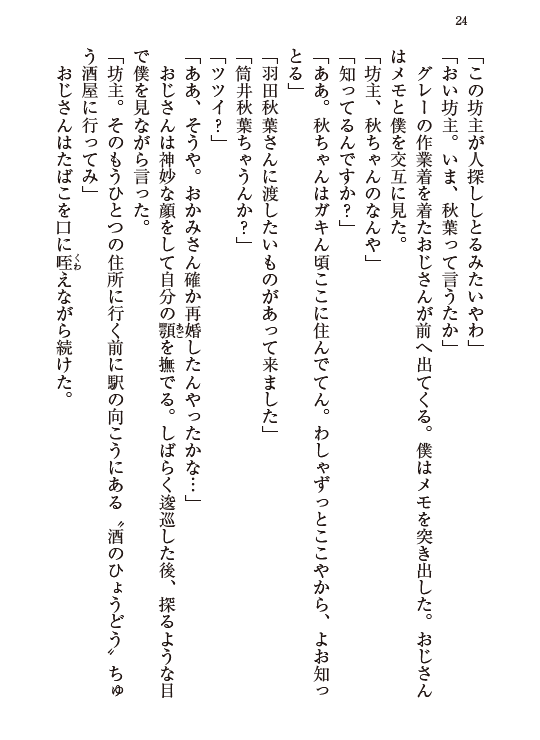 24
「この坊主が人探ししとるみたいやわ」
「おい坊主。いま、秋葉って言うたか」
　グレーの作業着を着たおじさんが前へ出てくる。僕はメモを突き出した。おじさん
はメモと僕を交互に見た。
「坊主、秋ちゃんのなんや」
「知ってるんですか？」
「ああ。秋ちゃんはガキん頃ここに住んでてん。わしゃずっとここやから、よお知っ
とる」
「羽田秋葉さんに渡したいものがあって来ました」
「筒井秋葉ちゃうんか？」
「ツツイ？」
「ああ、そうや。おかみさん確か再婚したんやったかな…」
　おじさんは神妙な顔をして自分の顎あごを撫でる。しばらく逡巡した後、探るような目
で僕を見ながら言った。
「坊主。そのもうひとつの住所に行く前に駅の向こうにある〝酒のひょうどう〟ちゅ
う酒屋に行ってみ」
　おじさんはたばこを口に咥くわえながら続けた。